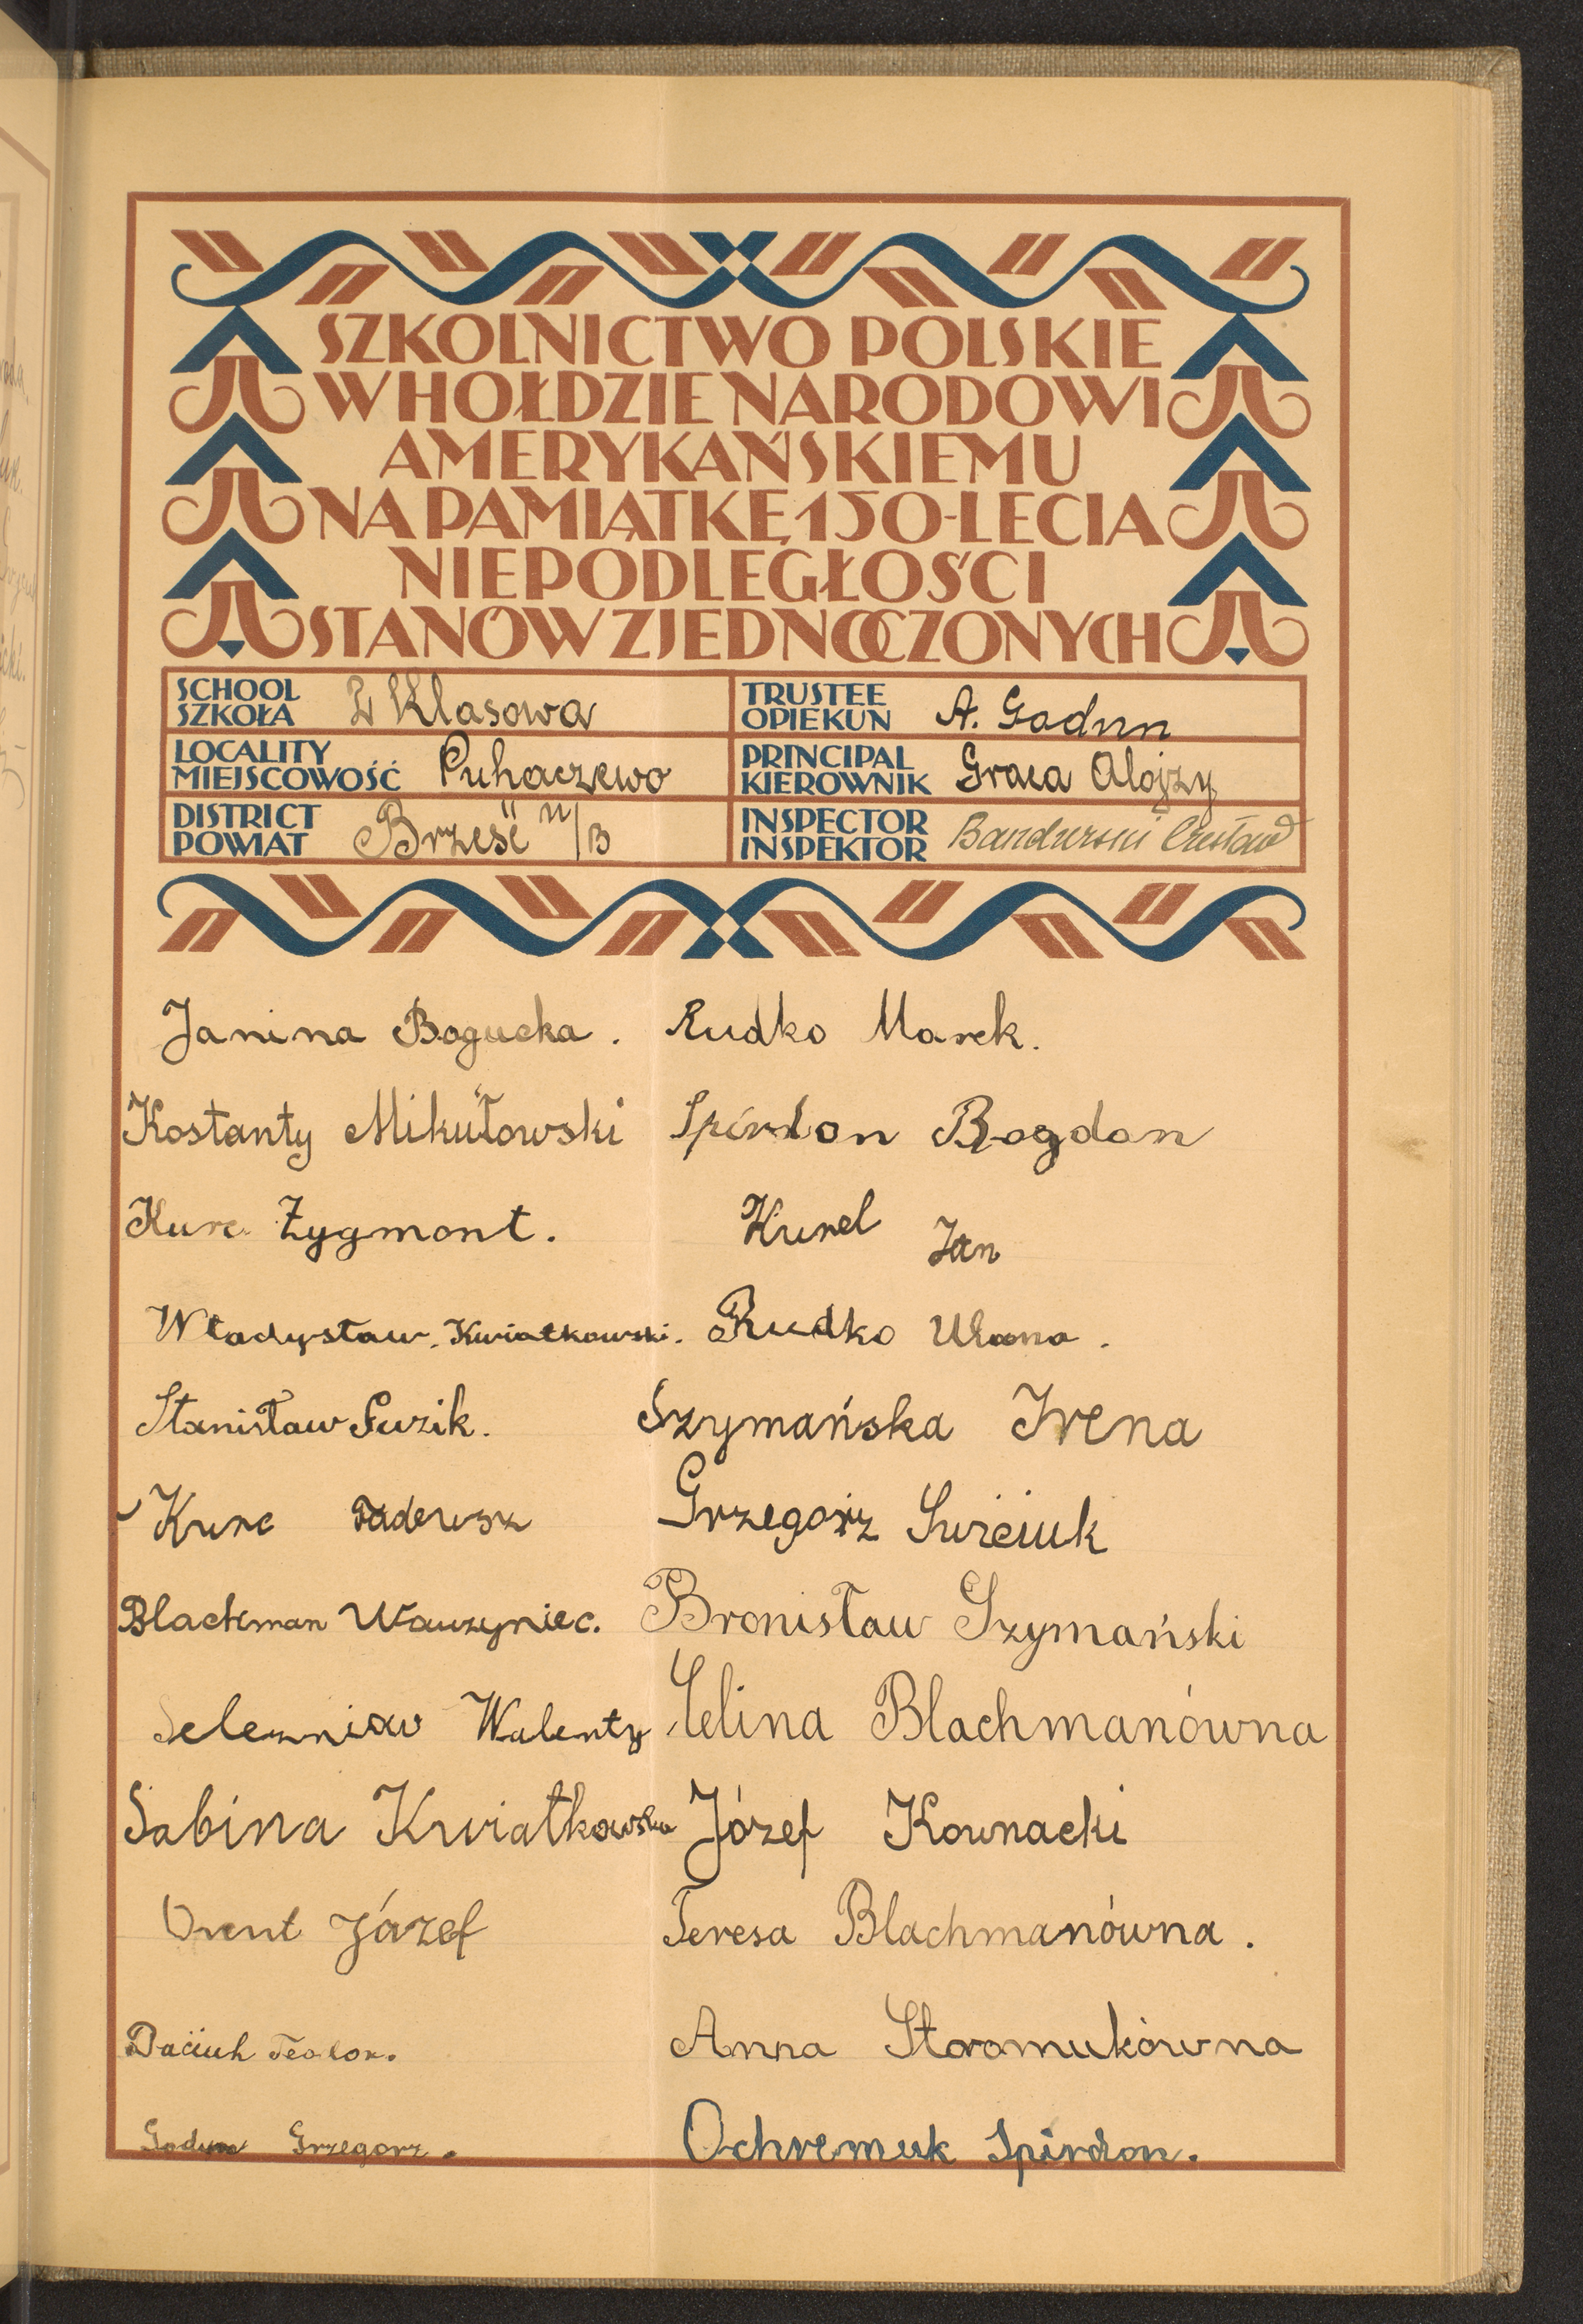 SZKOLNICTWO POLSKIE
W HOŁDZIE NARODOWI
AMERYKAŃSKIEMU
NA PAMIĄTKĘ 150-LECIA
NIEPODLEGŁOŚCI
STANÓW ZJEDNOCZONYCH
SCHOOL
SZKOŁA Klasowa
TRUSTEE
OPIEKUN A. Gadun
LOCALITY
MIEJSCOWOŚĆ Puhaczewo
PRINCIPAL
KIEROWNIK Graca Alojzy
DISTRICT
POWIAT Brześć n/B
INSPECTOR
INSPEKTOR Bandurski Czesław
Janina Bogucka. Rudko Marek.
Kostanty Mikułowski Spirdon Bogdan
Kurc Zygmont. Kurel Jan
Władysław. Kwiatkowski. Rudko Ulana.
Stanisław Guzik. Szymańska Irena
Kurc Tadeusz Grzegorz
Blachman Wawzyniec. Bronisław Szymański
Selezniow Walenty Celina Blachmanówna
Sabina Kwiatkowska Józef Kownacki
Orent Józef Teresa Blachmanówna.
Daciuk Teodor. Anna Staromukówna
Gadun Grzegorz. Ochremuk Spirdon.